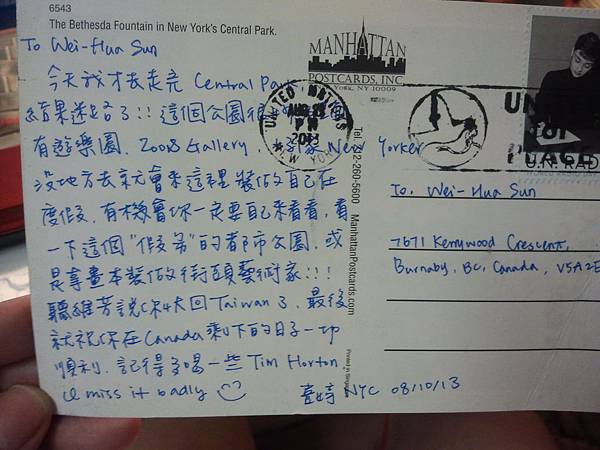 6543
The Bethesda Fountain in New York's Central Park.
To Wei-Hua Sun
今天我才去走完 Central Park,
結果迷路了!! 這個公園很
有遊樂園, Zoo & Gallery, 家 New Yorker
沒地方去就會來這裡裝做自己在
度假, 有機會你一定要自己來看看, 看
一下這個"假掰"的都市公園, 或
是拿畫本裝做街頭藝術家!!!
聽維芳說你4天回Taiwan了, 最後
就祝你在Canada剩下的日子一切
順利, 記得多喝一些 Tim Horton
I miss it badly
NYC 08/10/13
MANHATTAN
POSTCARDS, INC.
York, NY 10009
UNITED NATIONS
2013
NEW YORK
Tel. 212-260-5600 ManhattanPostcards.com
Printed in Singapore
UN
for
PEACE
To. Wei-Hua Sun
7671 Kerrywood Crescent,
Burnaby, BC, Canada, V5A2E